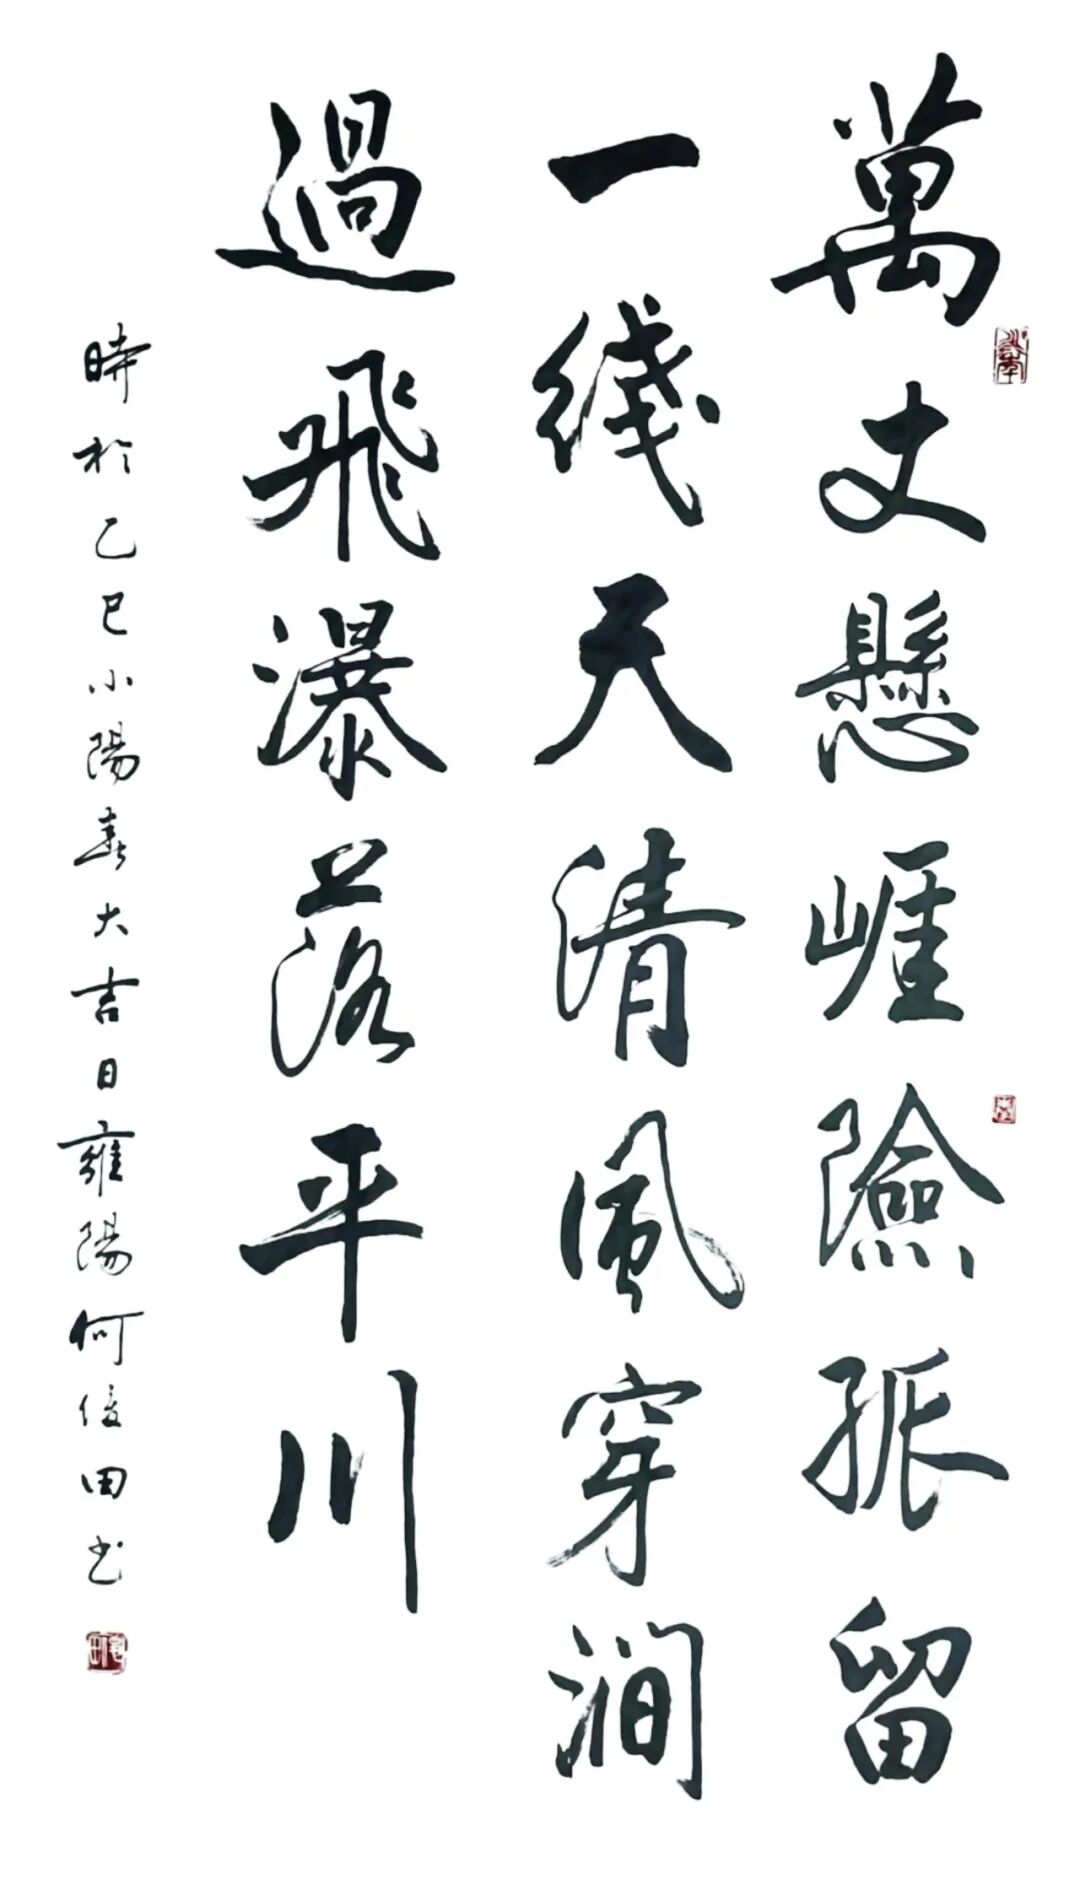 萬丈懸崖險孤留
一线天清風穿澗
過飛瀑落平川
時於乙巳小陽春大吉日雍陽何俊田书